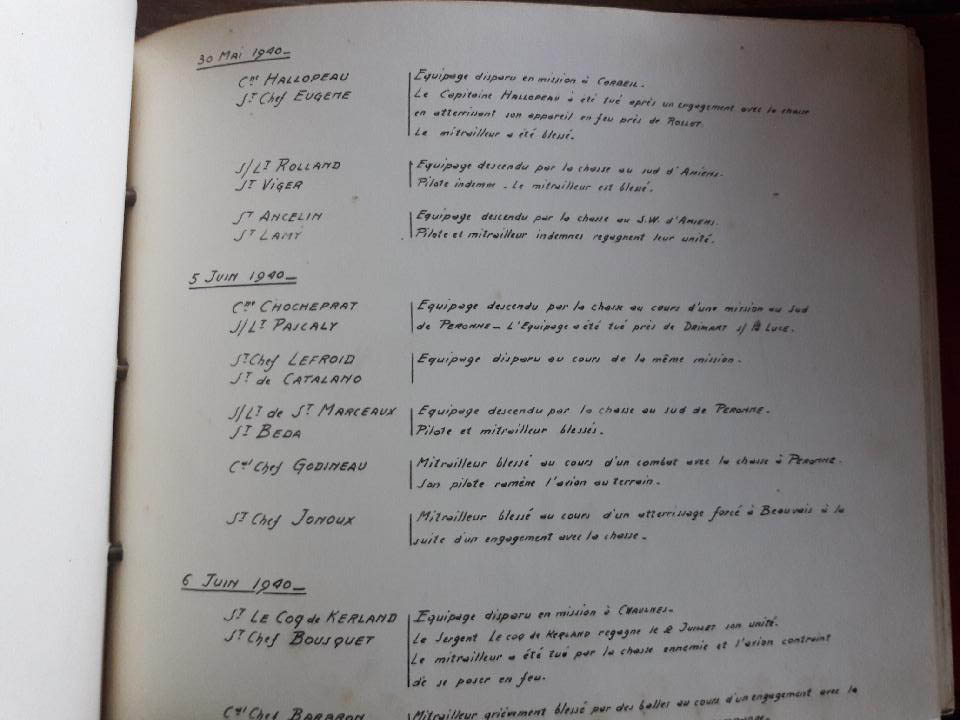 30 MAI 1940_
Cne HALLOPEAU
ST Chef EUGENE
Equipage disparu en mission à CORBEIL.
Le Capitaine HALLOPEAU a été tué après un engagement avec la chasse
en atterrissant son appareil en feu près de ROLLOT.
Le mitrailleur a été blessé.
S/LT ROLLAND
ST VIGER
Equipage descendu par la chasse au sud d'AMIENS.
Pilote indemne - Le mitrailleur est blessé.
ST ANCELIN
ST LAMY
Equipage descendu par la chasse au S.W. d'AMIENS.
Pilote et mitrailleur indemnes regagnent leur unité.
5 JUIN 1940_
Cne CHOCHEPRAT
S/LT PASCALY
Equipage descendu par la chasse au cours d'une mission au sud
de PERONNE - L'Equipage a été tué près de s/ LUCE.
ST Chef LEFROID
ST de CATALANO
Equipage disparu au cours de la même mission.
S/LT de ST MARCEAUX
ST BEDA
Equipage descendu par la chasse au sud de PERONNE.
Pilote et mitrailleur blessés.
Cal Chef GODINEAU
Mitrailleur blessé au cours d'un combat avec la chasse à PERONNE.
Son pilote ramène l'avion au terrain.
ST Chef JONOUX
Mitrailleur blessé au cours d'un atterrissage forcé à Beauvais à la
suite d'un engagement avec la chasse.
6 JUIN 1940_
ST LE COQ de KERLAND
ST Chef BOUSQUET
Equipage disparu en mission à CHAULNES.
Le Sergent LE COQ de KERLAND regagne le 2 JUILLET son unité.
Le mitrailleur a été tué par la chasse ennemie et l'avion contraint
de se poser en feu.
Cal Chef BARBRON
Mitrailleur grièvement blessé par des balles au cours d'un engagement avec la